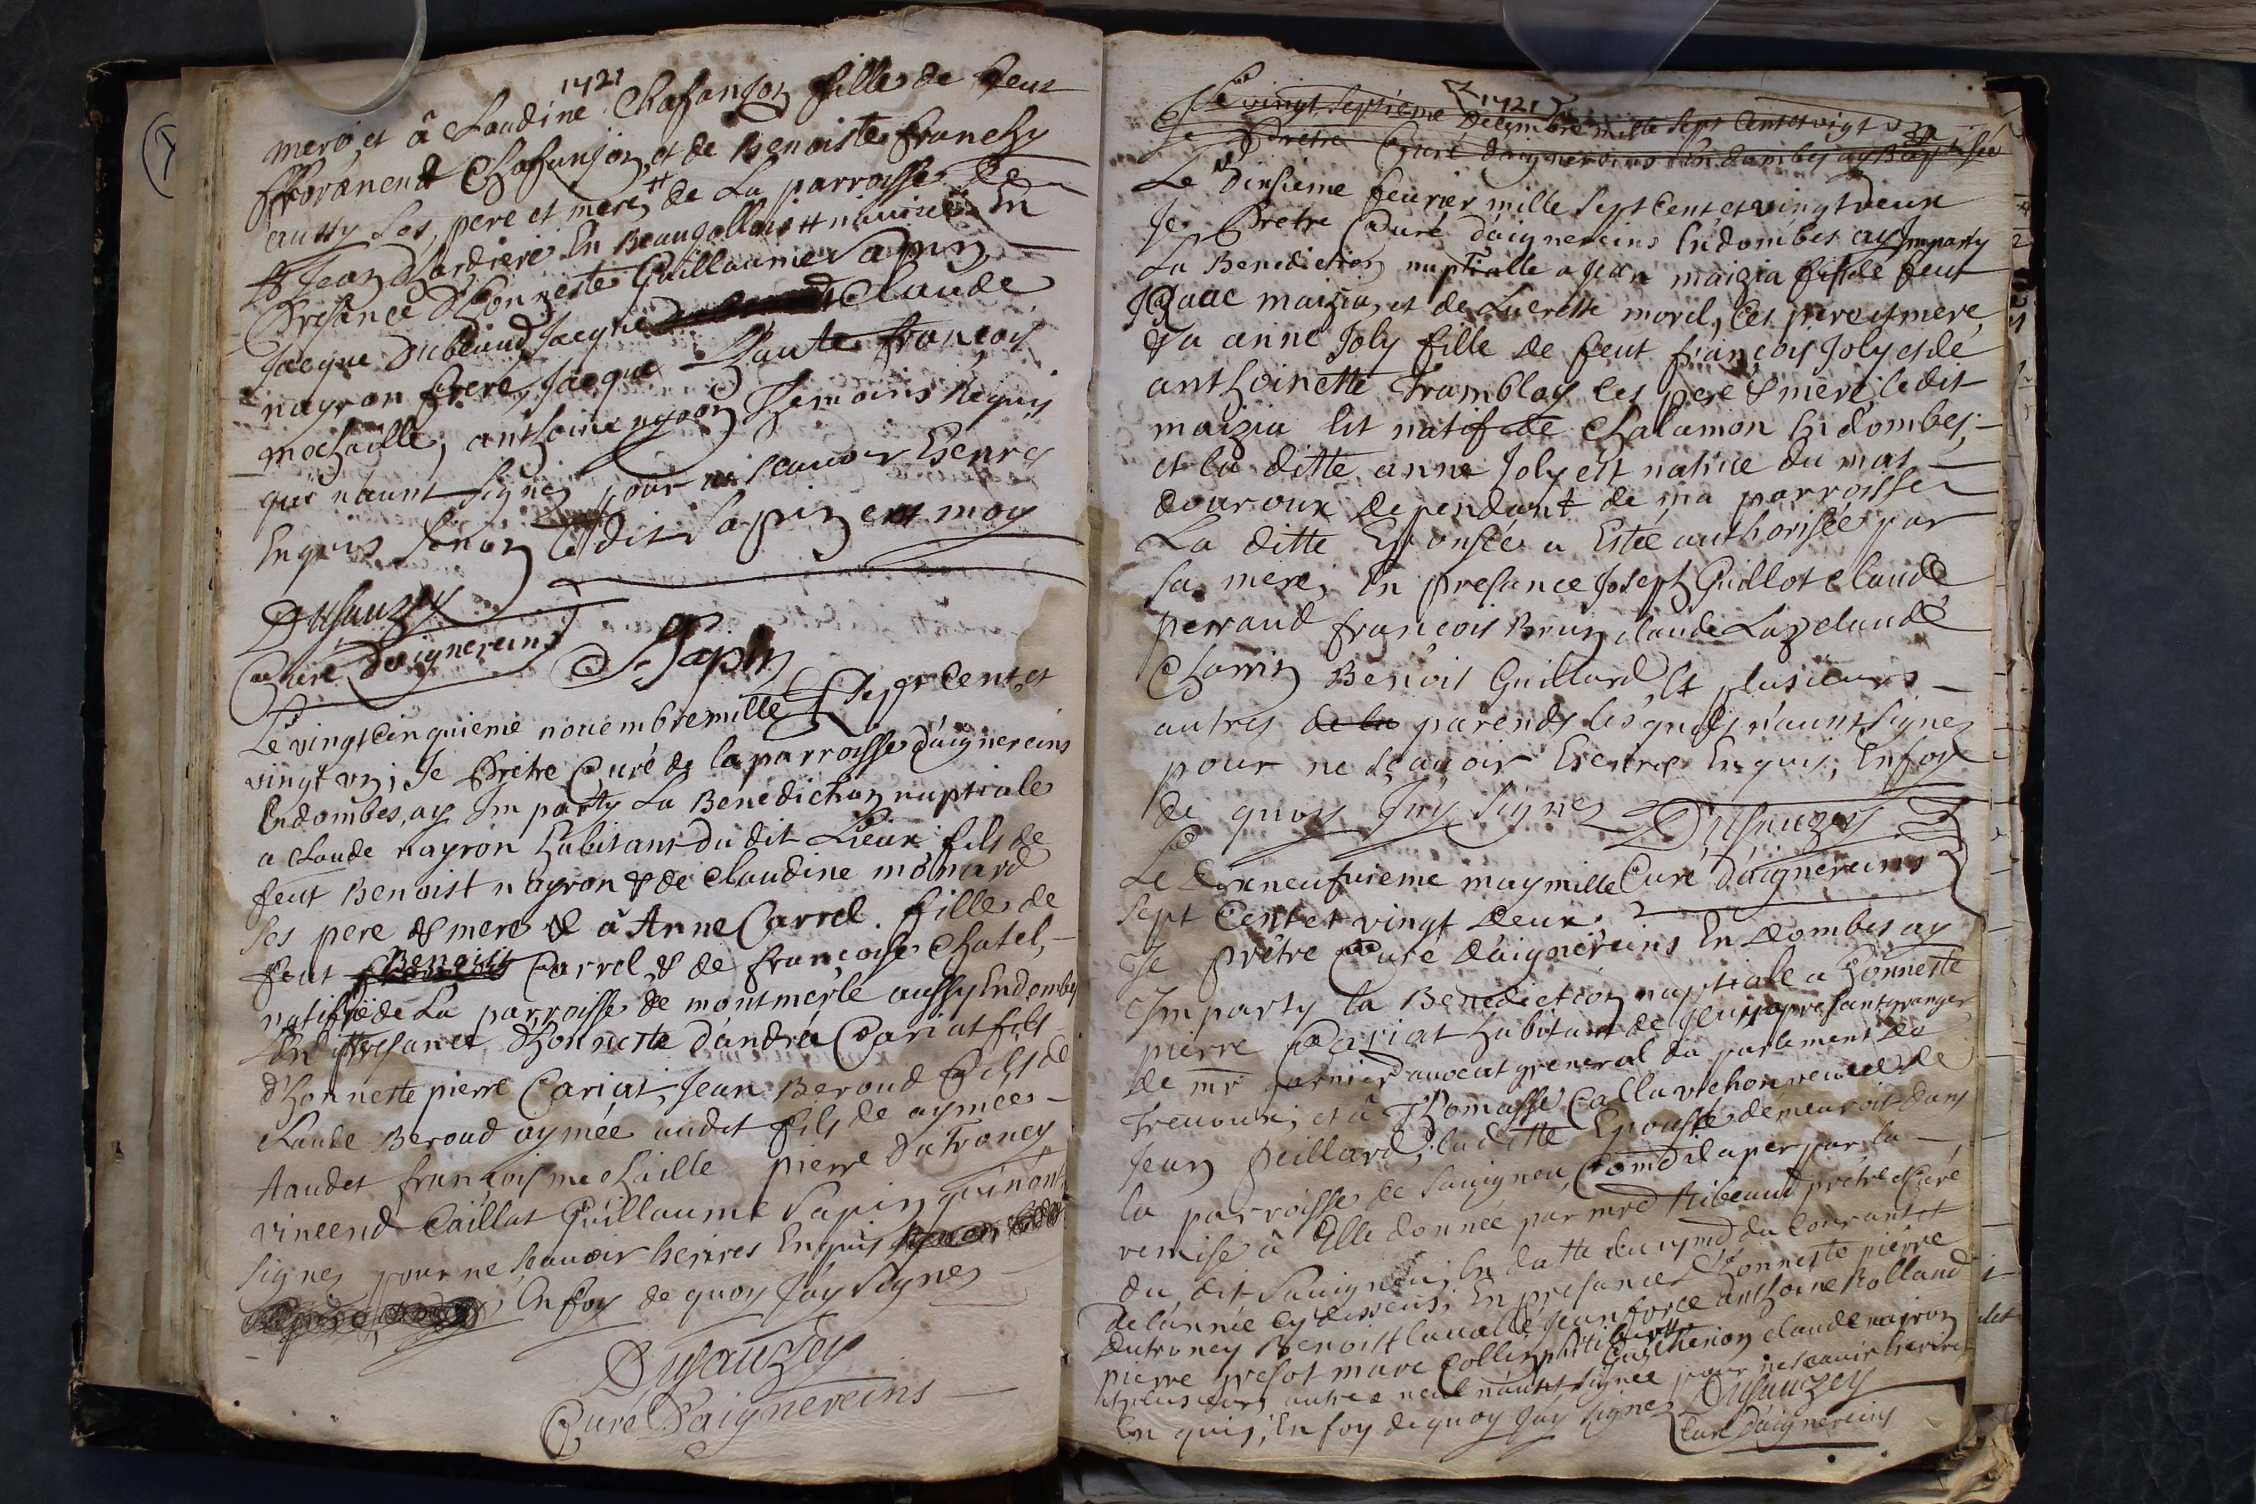 1721
mere et â Claudine Chafanjon fille de feut
chafanjon et de Benoiste franchy
aussy ses pere et mere de La parroisse de
St Jean dardiere En Beaugollois
Presance dhonneste Guillaume Sapin
Jacque Dubeaud Jacque Claude
nayron frere, Jacque Laute françois
mechaille, anthoine nyoon temoins requis
qui n'aunt signez pour ne scauoir Escrire
Enquis sinon le dit Sapin et moy
Dusauzey
Curé d'aignereins Sapin
Le vingt cinquieme nouembre mille Sept Cent et
vingt un, Je Prêtre Curé de la parroisse d'aignereins
En dombes, ay Imparty La Benediction nuptiale
a claude nayron habitant du dit Lieux fils de
feut Benoist nayron & de claudine monard
ses pere & mere & â Anne Carrel fille de
feut Benoist Carrel & de françoise Chatel,
natifue de La parroisse de montmerle aussy En dombes
En presance dhonneste d'andré Cariat fils
d'honneste pierre Cariat, Jean Beroud fils de
claude Beroud aymée audet fils de aymée
Audet françois mechaille pierre Dutroncy
vincend Caillat Guillaume Sapin qui n'ont
signez pour ne scauoir Escrires Enquis
En foy de quoy J'ay signez
Dusauzey
Curé D'aignereins
1721
Le vingt Septieme Decembre mille Sept Cent et vigt un
Je Prêtre Curé d'aignereins En dombes ay Baptisée
Le dixsieme feurier mille Sept Cent et vingt deux
Je Prêtre Curé d'aignereins En dombes ay Imparty
La Benediction nuptialle a Jean maizia fils de feut
Isaac maizia, et de Lucrette morel, ses pere et mere
& a anne Joly fille de feut françois Joly et de
anthoinette Tramblay ses pere & mere, le dit
maizia Est natif de Chalamon En dombes,
et la ditte anne Joly Est natiue du mas
douroux dependant de ma parroisse
La ditte Epousée a Estée authorisée par
sa mere, En presance Joseph Guillot claude
perraud françois Brun claude Laz claude
Charrin Benoit Guillard Et plusieurs
autres de la parends les quels n'aunt signez
pour ne scauoir Escrire Enquis, En foy
de quoy J'ay signez Dusauzey
Curé d'aignereins
Le dixneufuieme may mille
sept Cent et vingt deux.
Je prêtre Curé d'aignereins En Dombes ay
Imparty la Benediction nuptiale a honneste
pierre Cariat habitant de presant granger
de mr garnier auocat general du parlement de
Treuoux, et â Thomasse Callavichon veuue de
Jean peillard, la ditte Epouste demeuroit dans
la parroisse de Sauigneu, Comme il aper par la
remise â Elle donnée par mre Ribeaud prêtre Curé
du dit Sauigneu, En datte du du Courant et
de l'année cy dessus, En presance dhonneste pierre
Dutroncy Benoist lauallé Jean force anthoine Rolland
pierre presot marc Collin philibert Guichenon claude nairon
et plusieurs autre ne n'aunt signée pour ne scauoir Escrire
En quis, En foy de quoy J'ay signez Dusauzey
Curé d'aignereins